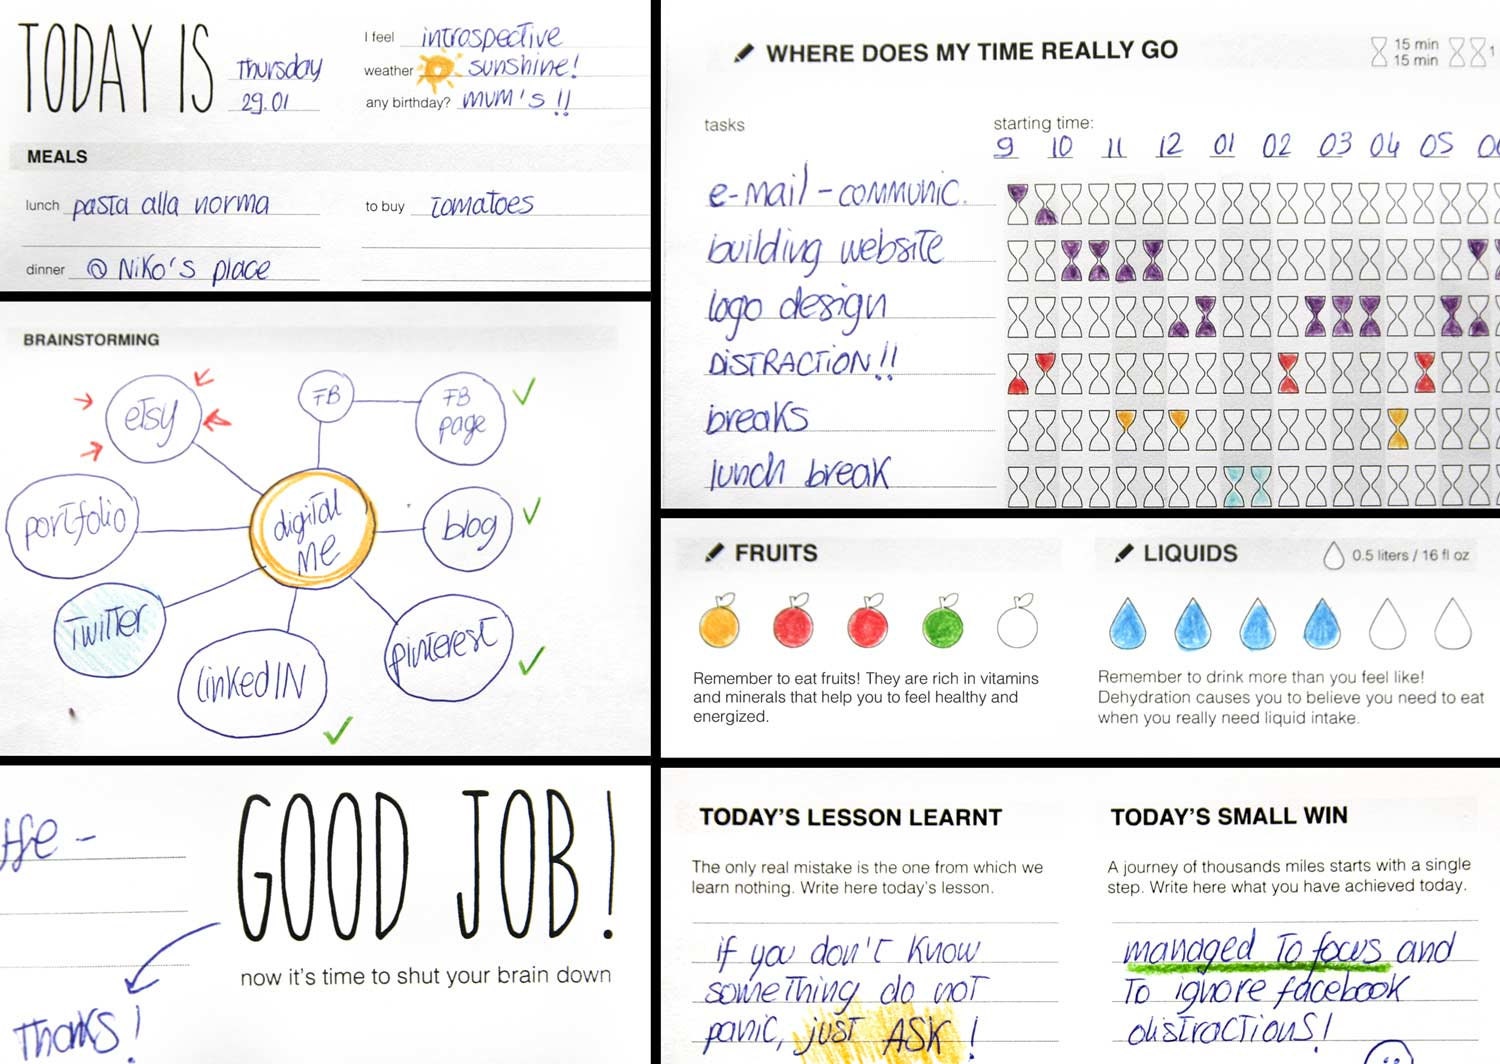 TODAY IS
Thursday
29.01
I feel introspective
weather sunshine!
any birthday? MUM'S!!
MEALS
lunch pasta alla norma
to buy tomatoes
dinner @ Niko's place
BRAINSTORMING
etsy
FB
FB page
portfolio
digital ME
blog
Twitter
linkedIN
pinterest
GOOD JOB!
now it's time to shut your brain down
Thanks!
WHERE DOES MY TIME REALLY GO
15 min
15 min
tasks
starting time:
9 10 11 12 01 02 03 04 05
e-mail - communic.
building website
logo design
DISTRACTION!!
breaks
lunch break
FRUITS
Remember to eat fruits! They are rich in vitamins
and minerals that help you to feel healthy and
energized.
LIQUIDS
0.5 liters / 16 fl oz
Remember to drink more than you feel like!
Dehydration causes you to believe you need to eat
when you really need liquid intake.
TODAY'S LESSON LEARNT
The only real mistake is the one from which we
learn nothing. Write here today's lesson.
if you don't know
something do not
panic, just ASK!
TODAY'S SMALL WIN
A journey of thousands miles starts with a single
step. Write here what you have achieved today.
managed to focus and
to ignore facebook
distractions!